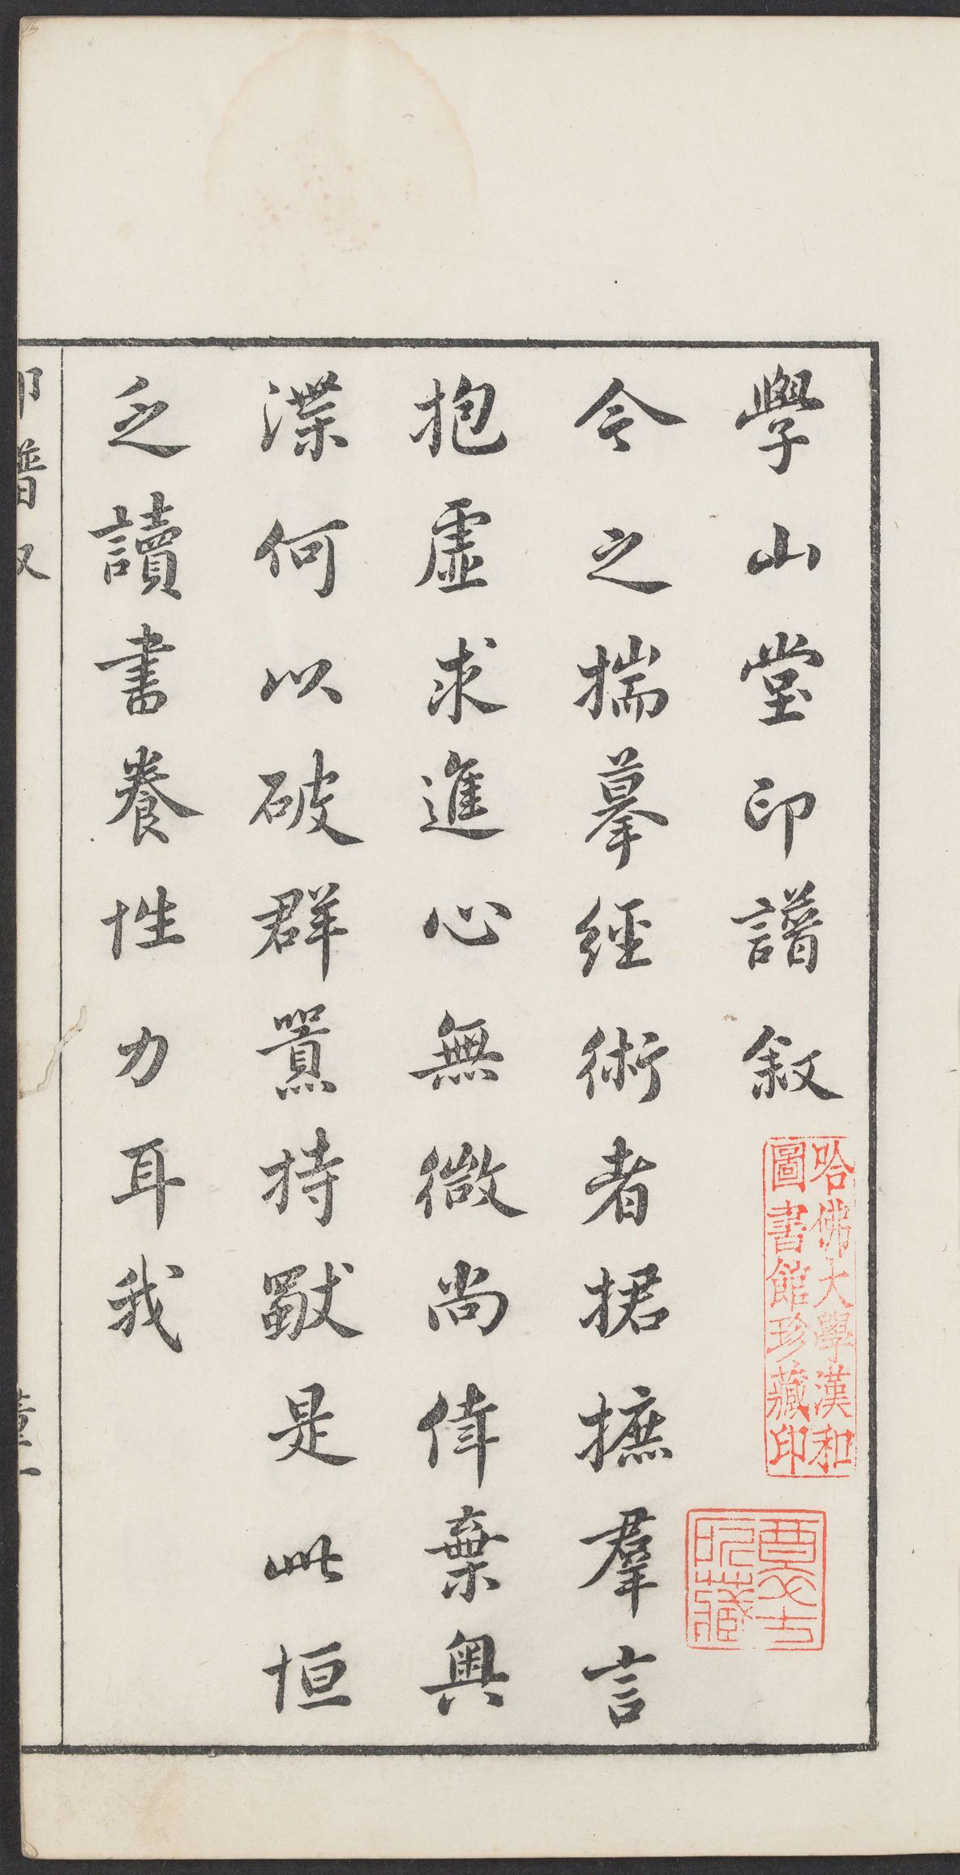 學山堂印譜敘
今之揣摹經術者捃摭羣言
抱虛求進心無微尚偉棄輿
渫何以破群嚚持厭是此恒
之讀書養性力耳我
哈佛大學漢和
圖書館珍藏印
藏
印譜叙
董一